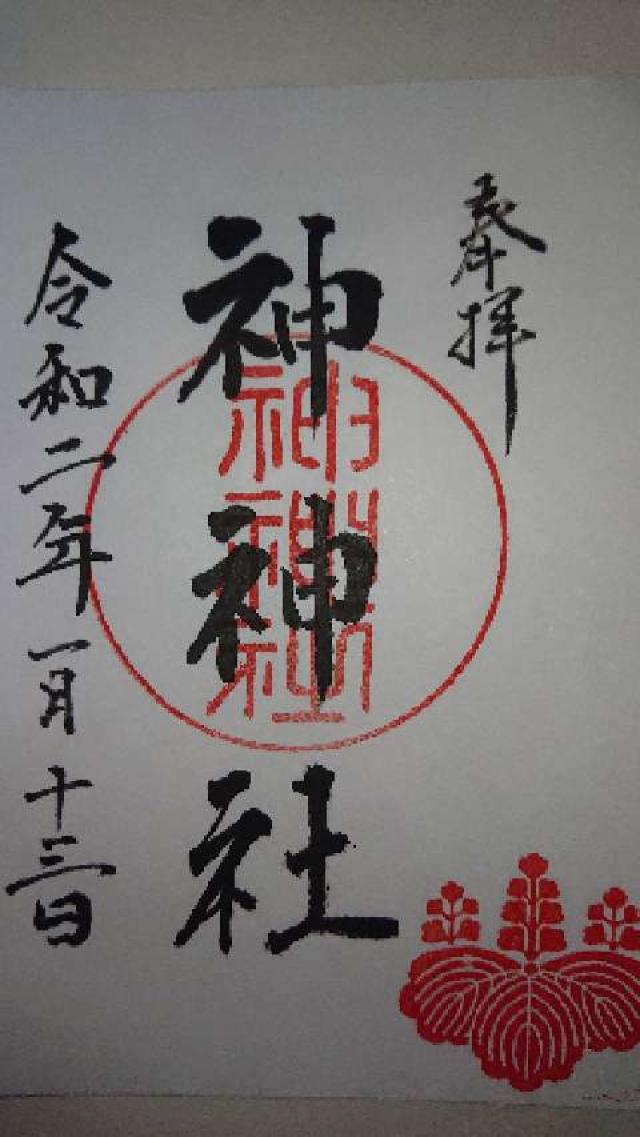 奉拝
神神社
令和二年一月十三日